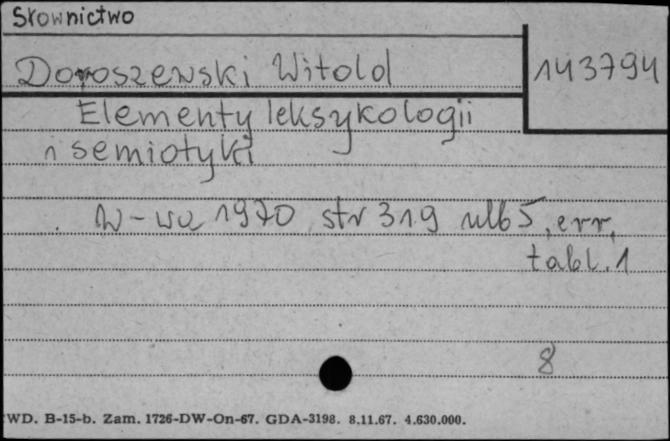 Słownictwo
Doroszewski Witold
143794
Elementy leksykologii
i semiotyki
W-wa 1970 str 319 nlb 5, err,
tabl. 1
8
WD. B-15-b. Zam. 1726-DW-On-67. GDA-3198. 8.11.67. 4.630.000.